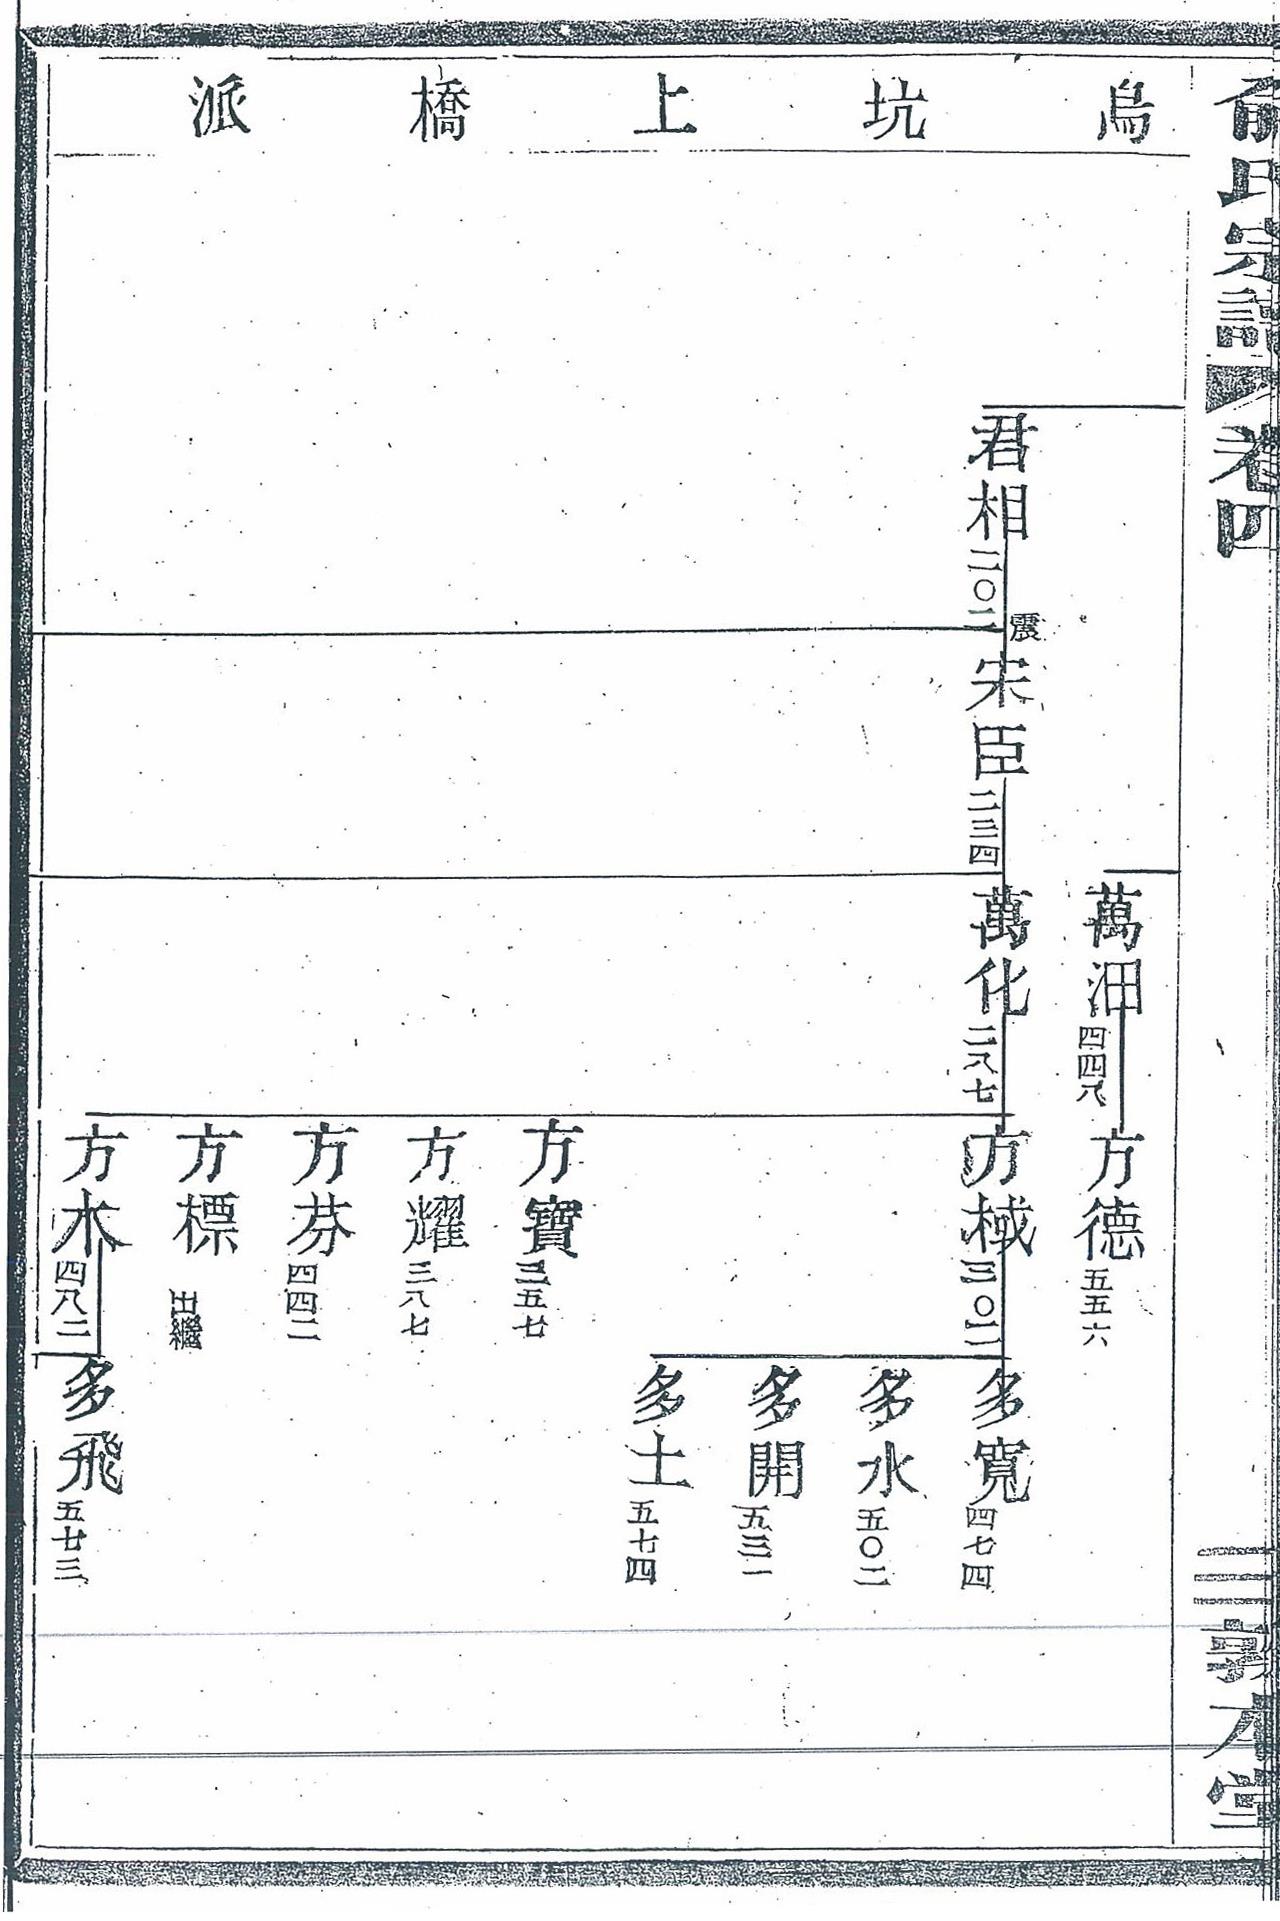 俞氏宗譜 卷四
三 敦本堂
烏坑上橋派
萬沺 四四八
方德 五五六
君相 二〇二
震
宋臣 二三四
萬化 二八七
方棫 三〇二
多寬 四七四
多水 五〇二
多開 五三一
多土 五七四
方寶 三五七
方耀 三八七
方芬 四四二
方標 出繼
方木 四八二
多飛 五七三